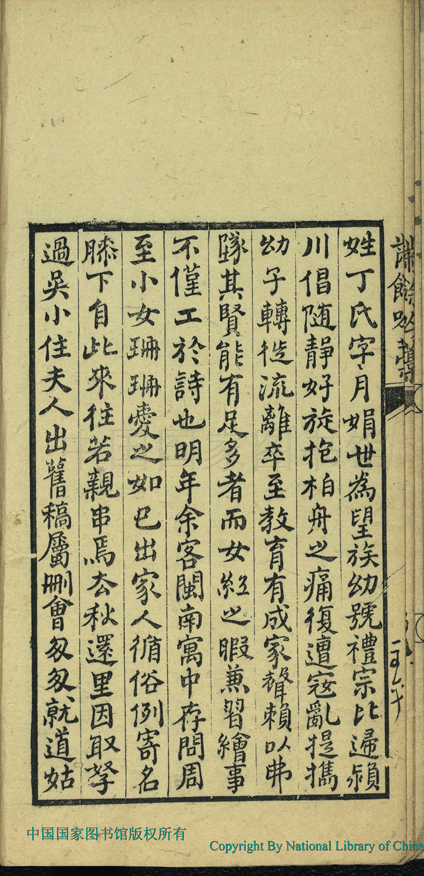 姓丁氏字月娟世為望族幼號禮宗比遄潁
川倡随靜好旋抱柏舟之痛復遭寇亂提攜
幼子轉徙流離卒至教育有成家聲賴以弗
隊其賢能有足多者而女紅之暇兼習繪事
不僅工於詩也明年余客閩南寓中存問周
至小女珊珊愛之如已出家人循俗例寄名
膝下自此來往若親串焉去秋還里因取拏
過吳小住夫人出舊稿屬刪會匆匆就道姑
課餘吟草
中国国家图书馆版权所有
Copyright By National Library of China